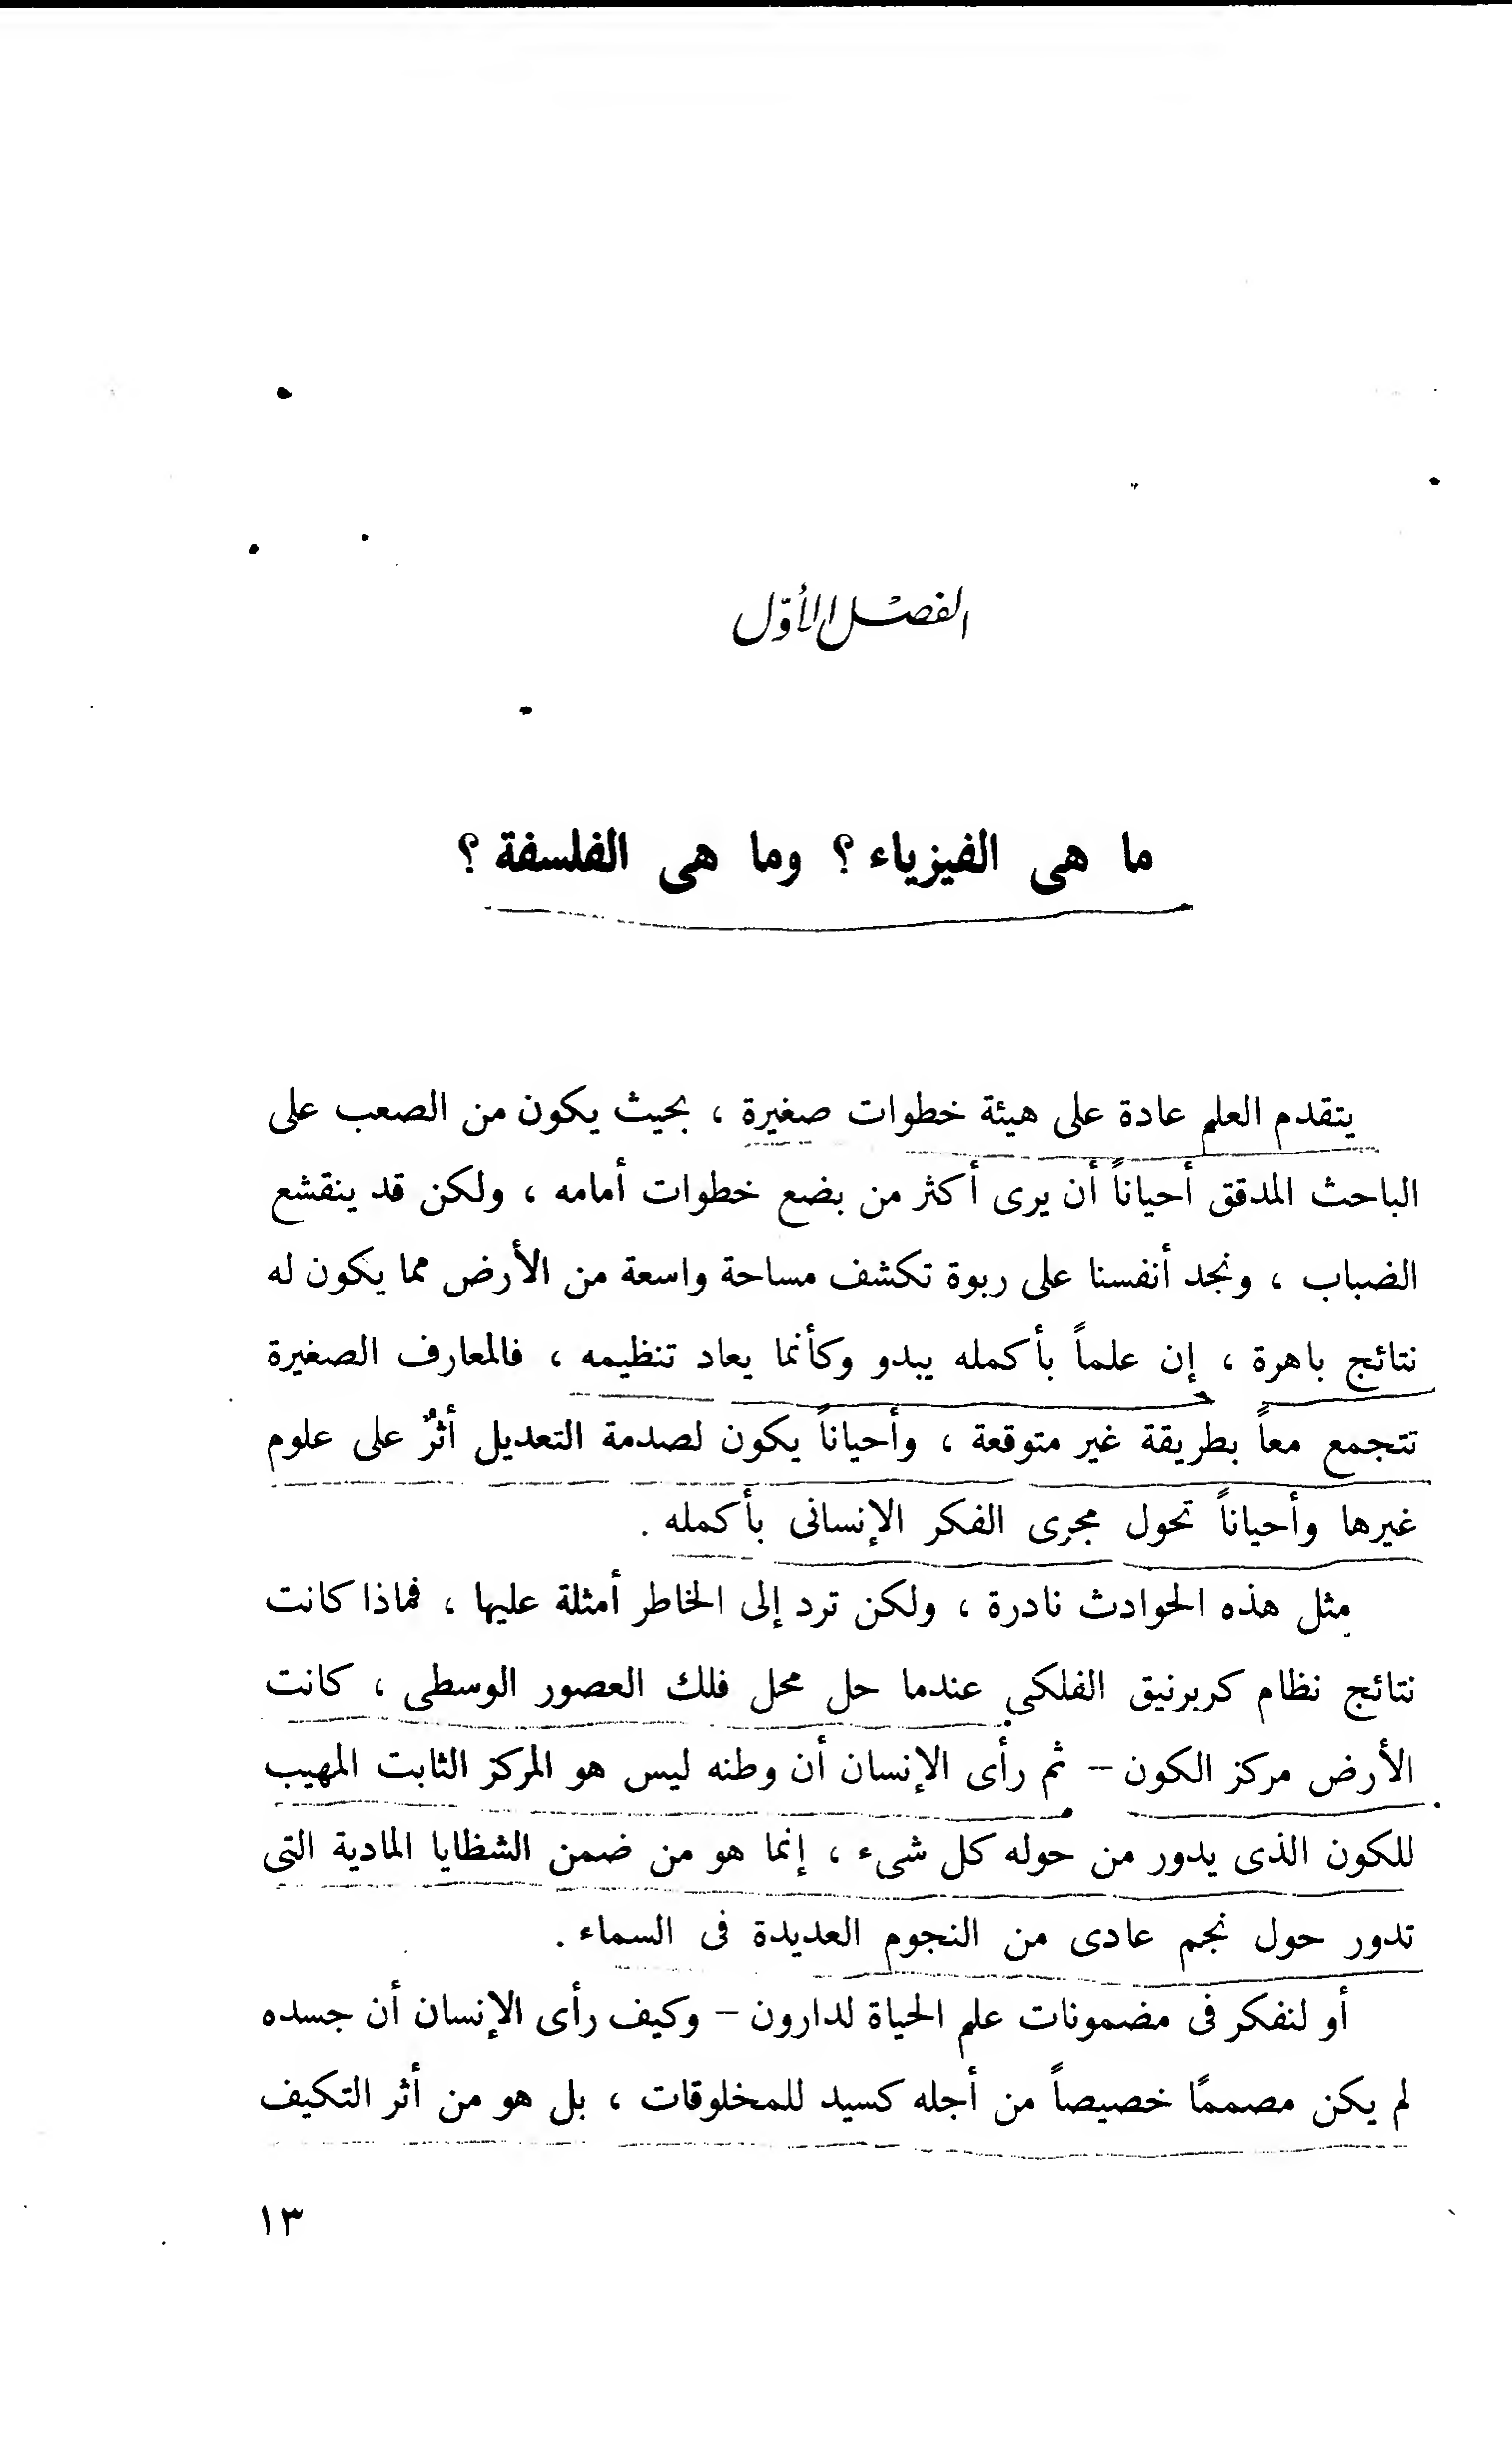 الفصل الأوّل
ما هى الفيزياء ؟ وما هى الفلسفة ؟
يتقدم العلم عادة على هيئة خطوات صغيرة ، بحيث يكون من الصعب على
الباحث المدقق أحياناً أن يرى أكثر من بضع خطوات أمامه ، ولكن قد ينقشع
الضباب ، ونجد أنفسنا على ربوة تكشف مساحة واسعة من الأرض مما يكون له
نتائج باهرة ، إن علماً بأكمله يبدو وكأنما يعاد تنظيمه ، فالمعارف الصغيرة
تتجمع معاً بطريقة غير متوقعة ، وأحياناً يكون لصدمة التعديل أثرٌ على علوم
غيرها وأحياناً تحول مجرى الفكر الإنسانى بأكمله .
مثل هذه الحوادث نادرة ، ولكن ترد إلى الخاطر أمثلة عليها ، فماذا كانت
نتائج نظام كربرنيق الفلكى عندما حل محل فلك العصور الوسطى ، كانت
الأرض مركز الكون – ثم رأى الإنسان أن وطنه ليس هو المركز الثابت المهيب
للكون الذى يدور من حوله كل شىء ، إنما هو من ضمن الشظايا المادية التى
تدور حول نجم عادى من النجوم العديدة فى السماء .
أو لنفكر فى مضمونات علم الحياة لدارون – وكيف رأى الإنسان أن جسده
لم يكن مصممًا خصيصاً من أجله كسيد للمخلوقات ، بل هو من أثر التكيف
١٣